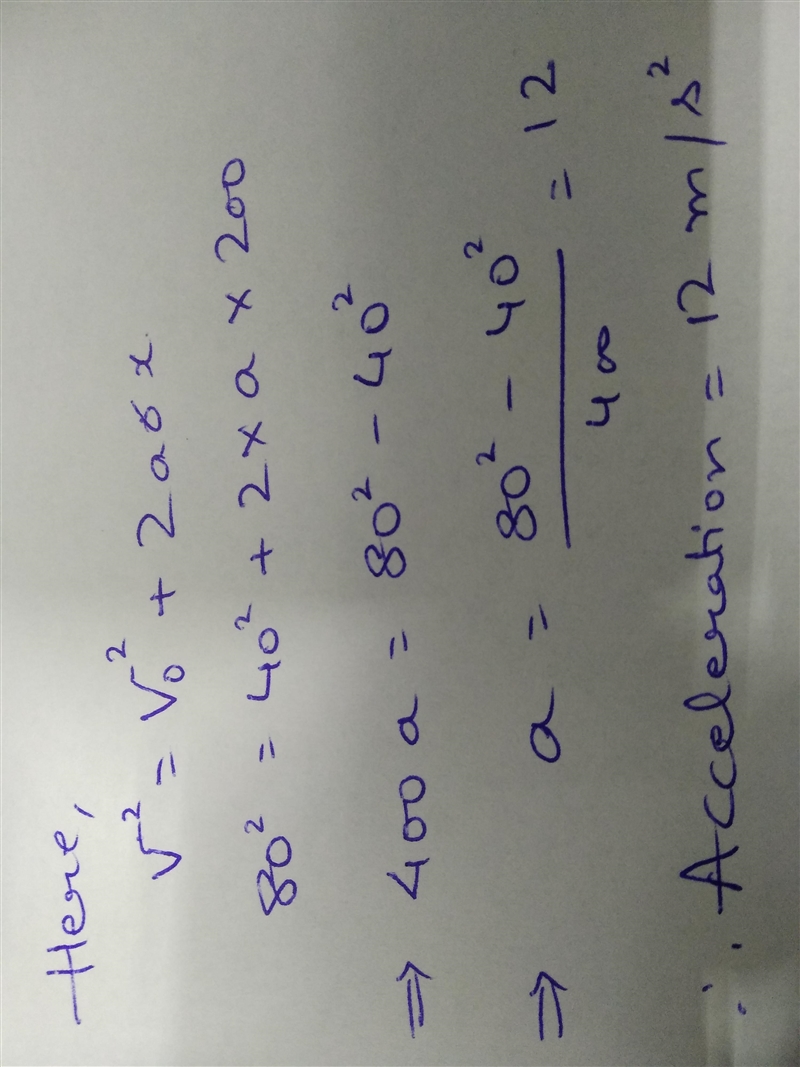 Here,
v² = v₀² + 2aδx
80² = 40² + 2 × a × 200
⇒ 400 a = 80² - 40²
⇒ a = (80² - 40²) / 400 = 12
∴ Acceleration = 12 m/s²